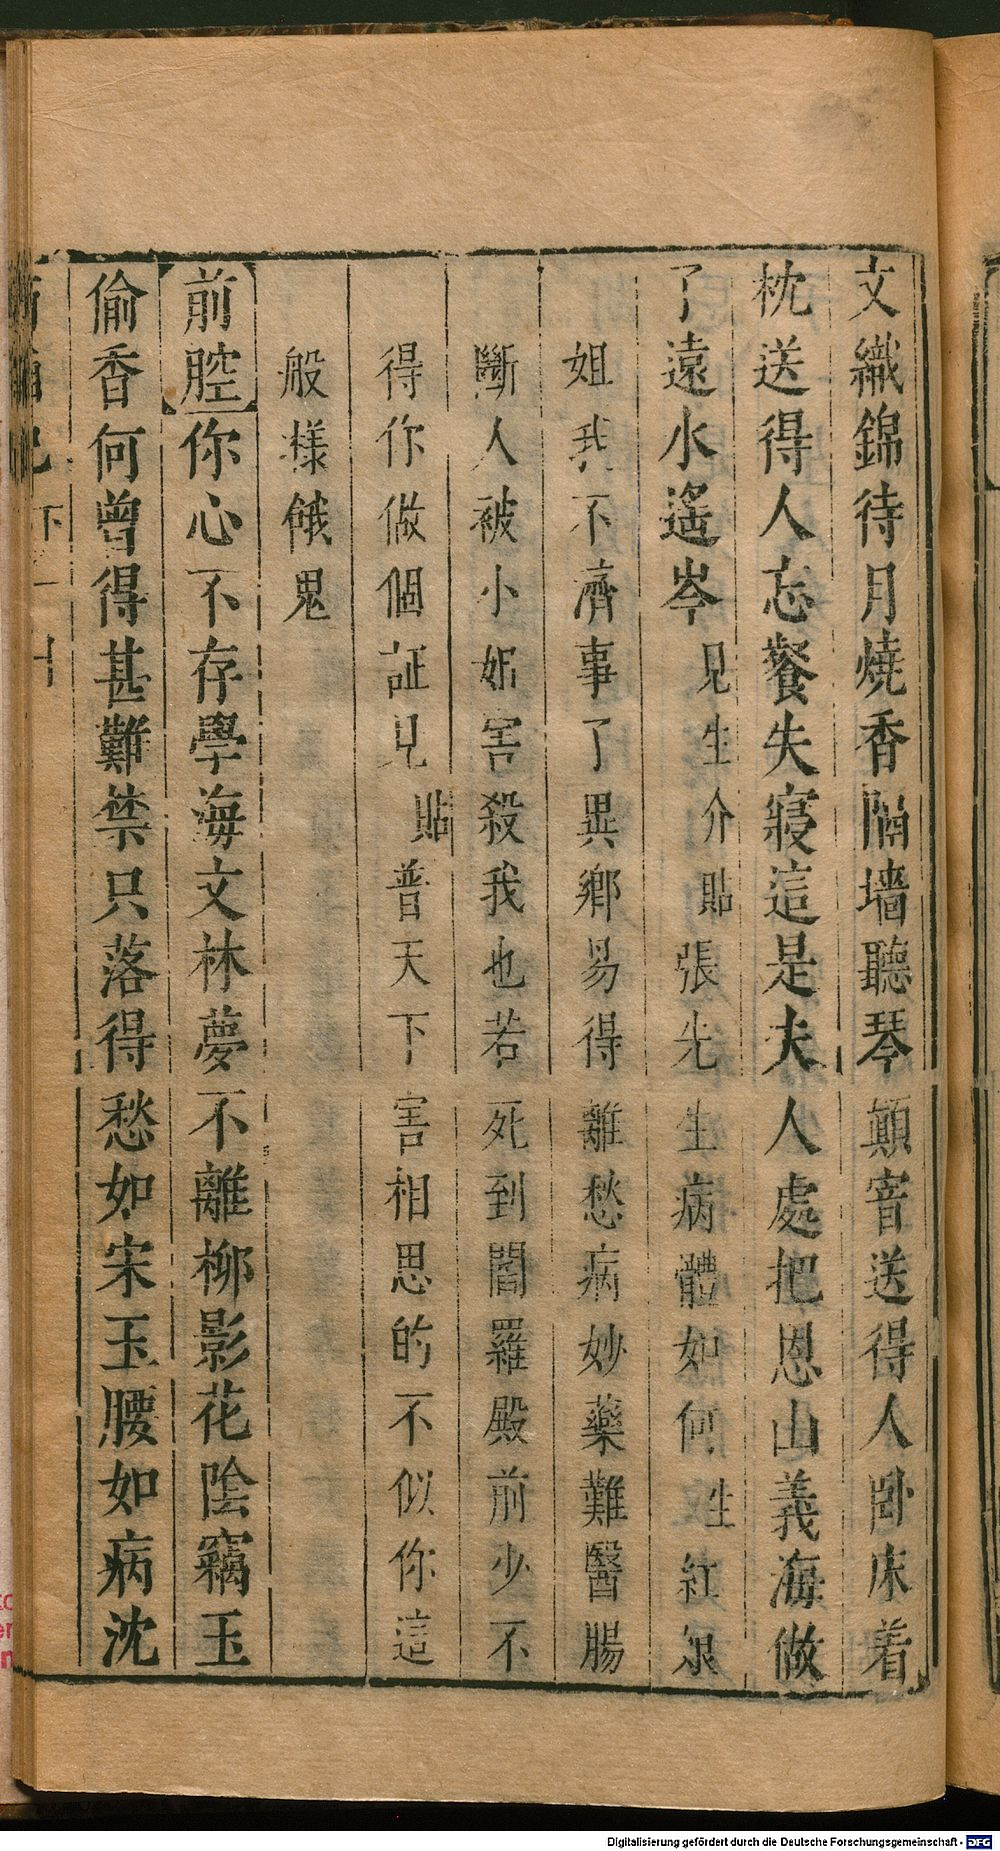 文織錦待月燒香隔墻聽琴顛窨送得人卧床着
枕送得人忘餐失寢這是夫人處把恩山義海做
了遠水遙岑見生介貼張先生病體如何生紅娘
姐我不濟事了異鄉易得離愁病妙藥難醫腸
斷人被小姐害殺我也若死到閻羅殿前少不
得你做個証見貼普天下害相思的不似你這
般様餓鬼
前腔你心不存學海文林夢不離柳影花陰竊玉
偷香何曾得甚難禁只落得愁如宋玉腰如病沈
下
Digitalisierung gefördert durch die Deutsche Forschungsgemeinschaft - DFG